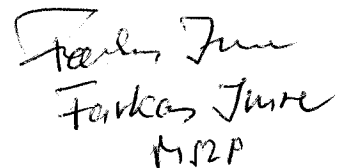 Farkas Imre
Farkas Imre
MSZP